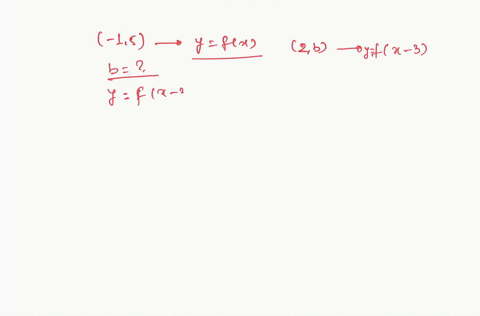 (-1,5) → y = f(x) (2,b) → y=f(x-3)
b = ?
y = f(x-